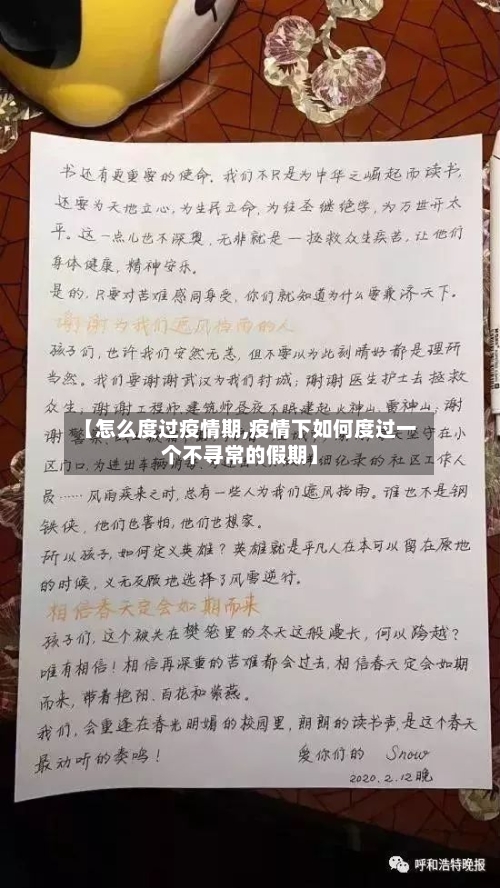 书还有更重要的使命。我们不只是为中华之崛起而读书,
还要为天地立心,为生民立命,为往圣继绝学,为万世开太
平。这一点儿也不深奥,无非就是一拯救众生疾苦,让他们
身体健康,精神安乐。
是的,只要对苦难感同身受,你们就知道为什么要兼济天下。
谢谢为我们遮风挡雨的人
孩子们,也许我们安然无恙,但不要以为此刻晴好都是理所
当然。我们要谢谢武汉为我们封城;谢谢医生护士去拯救
众生;谢谢工程师建筑师昼夜不眠建起火神山、雷神山;谢
谢警察
坚守在小
【怎么度过疫情期,疫情下如何度过一
个不寻常的假期】
区门口,为进出车辆
细纪录的社区工作人
员……风雨疾来之时,总有一些人为我们遮风挡雨。谁也不是钢
铁侠,他们也害怕,他们也想家。
所以孩子,如何定义英雄?英雄就是平凡人在本可以留在原地
的时候,义无反顾地选择了风雪逆行。
相信春天定会如期而来
孩子们,这个被关在樊笼里的冬天这般漫长,何以跨越?
唯有相信!相信再深重的苦难都会过去,相信春天定会如期
而来,带着艳阳、百花和紫燕。
我们,会重逢在春光明媚的校园里,朗朗的读书声,是这个春天
最动听的奏鸣!
爱你们的 Snow
2020.2.12晚
呼和浩特晚报